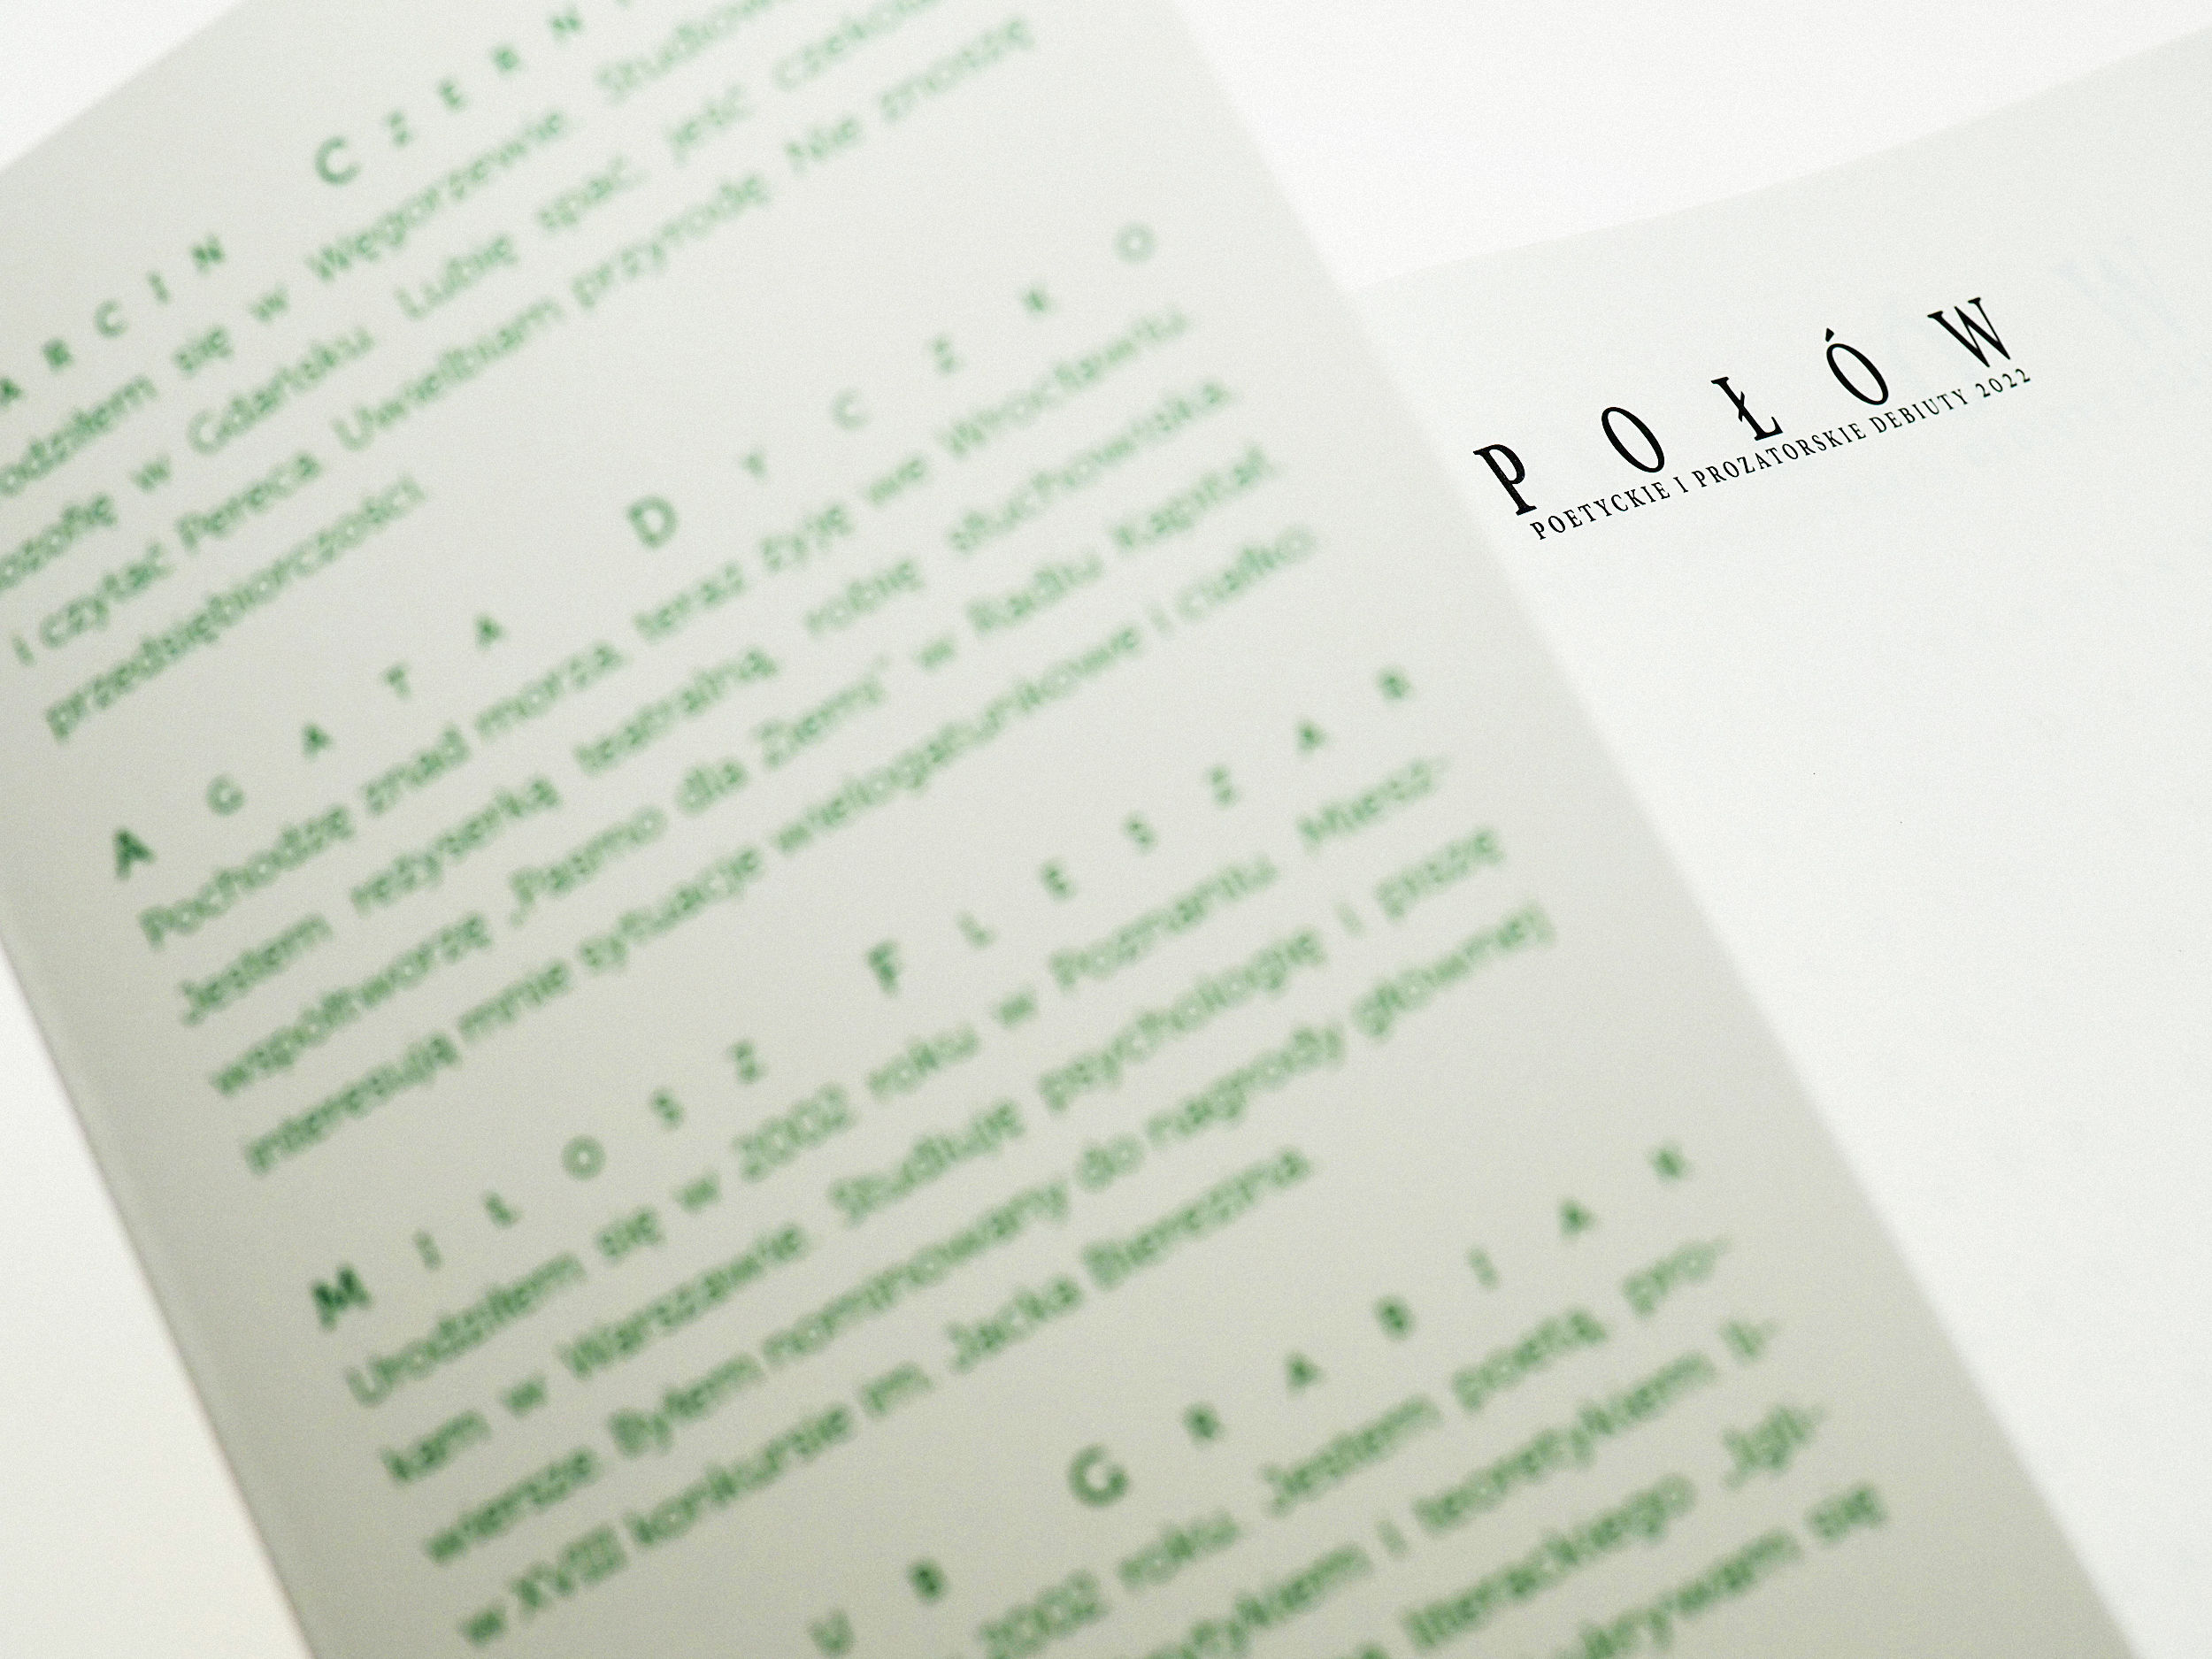 ARCIN CZERN
odziłem się w Węgorzewie. Studiow
ozofię w Gdańsku. Lubię spać, jeść czeko
i czytać Pereca. Uwielbiam przyrodę. Nie znoszę
przedsiębiorczości.
AGATA DYCZKO
Pochodzę znad morza, teraz żyję we Wrocławiu.
Jestem reżyserką teatralną, robię słuchowiska,
współtworzę „Pasmo dla Ziemi” w Radiu Kapitał.
Interesują mnie sytuacje wielogatunkowe i ciałko.
MIŁOSZ FLESZAR
Urodziłem się w 2002 roku w Poznaniu. Miesz-
kam w Warszawie. Studiuję psychologię i prozę
wiersze. Byłem nominowany do nagrody głównej
w XVIII konkursie im. Jacka Bierezina.
UB GRABIAK
2002 roku. Jestem poetą, pro-
rytykiem i teoretykiem li-
literackiego „Igli-
ukrywam się
POŁÓW
POETYCKIE I PROZATORSKIE DEBIUTY 2022